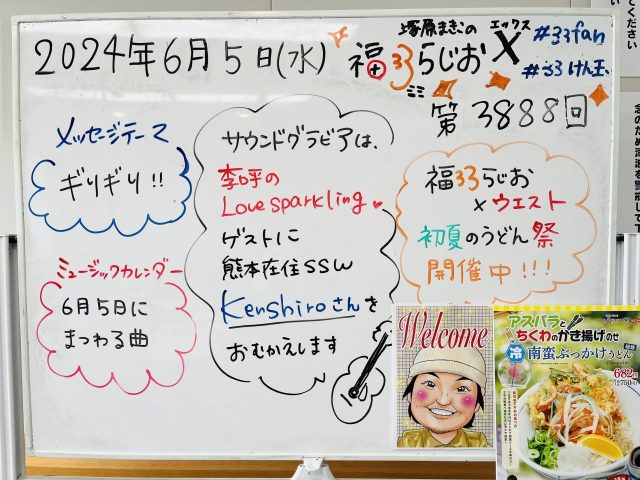 2024年6月5日(水)
塚原まきこの
福33らじお
エックス
X
#33fan
#33けん王
第3888回
メッセージテーマ
ギリギリ!!
サウンドグラビアは、
李呼の
Love sparkling
ゲストに
熊本在住SSW
Kenshiroさんを
おむかえします
福33らじお
×ウエスト
初夏のうどん祭
開催中!!!
ミュージックカレンダー
6月5日に
まつわる曲
Welcome
アスパラと
ちくわのかき揚げのせ
冷 南蛮ぶっかけうどん
682
750